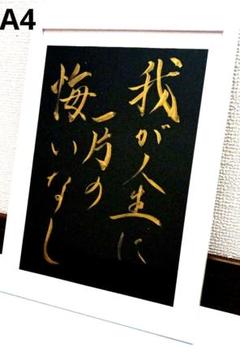 A4
我が人生に
一片の
悔いなし